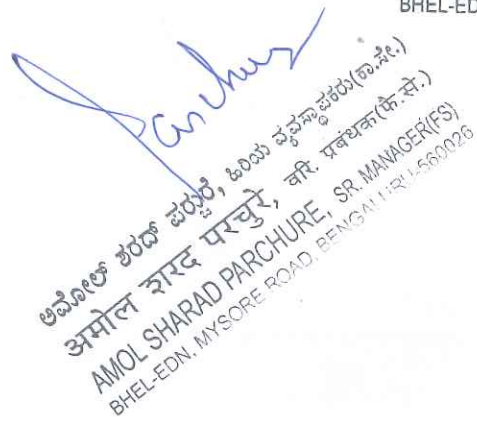 BHEL-ED
Parchure
ಅಮೋಲ್ ಶರದ್ ಪರ್ಚುರೆ, ಹಿರಿಯ ವ್ಯವಸ್ಥಾಪಕರು(ಕಾ.ಸೇ.)
अमोल शरद परचुरे, वरि. प्रबंधक(फै.से.)
AMOL SHARAD PARCHURE, SR. MANAGER(FS)
BHEL-EDN, MYSORE ROAD, BENGALURU-560026